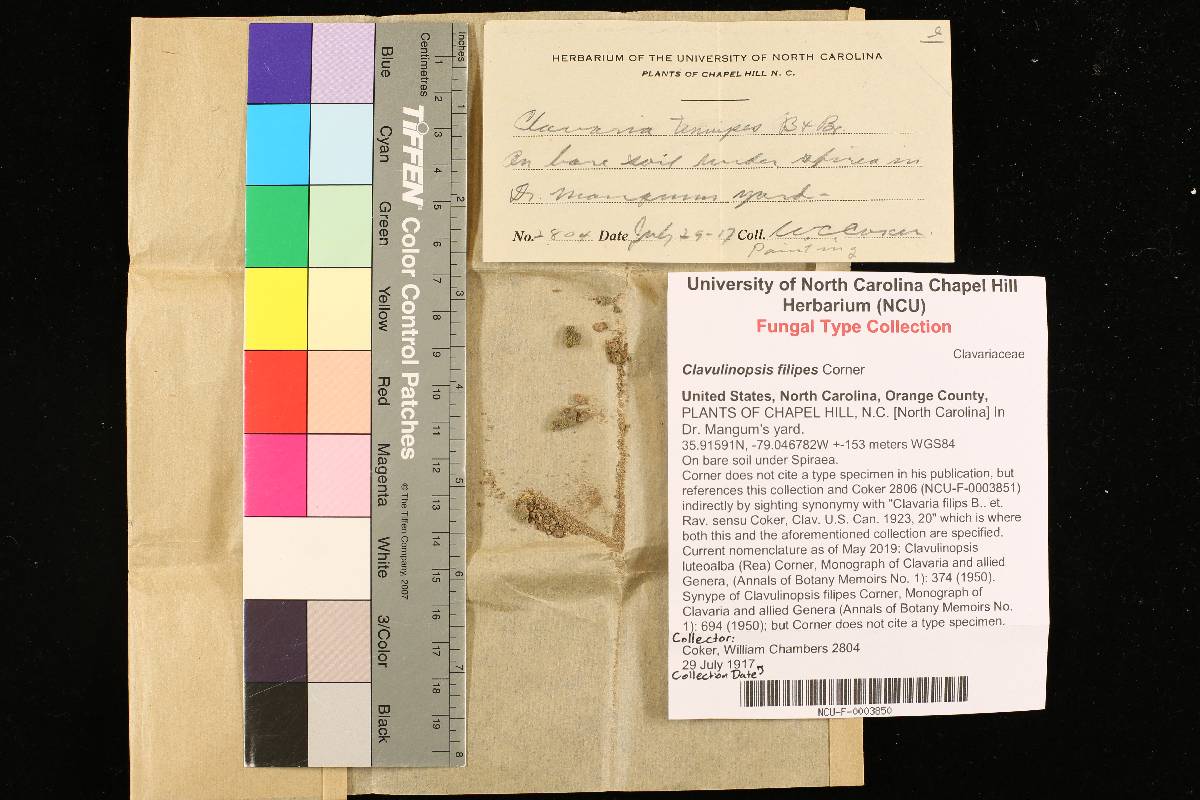 Inches
Centimetres
1 2 3 4 5 6 7 8 9 10 11 12 13 14 15 16 17 18 19
1 2 3 4 5 6 7 8
TIFFEN® Color Control Patches
© The Tiffen Company, 2007
Blue
Cyan
Green
Yellow
Red
Magenta
White
3/Color
Black
HERBARIUM OF THE UNIVERSITY OF NORTH CAROLINA
PLANTS OF CHAPEL HILL N. C.
Clavaria tenuipes B & Br
On bare soil under spirea in
Dr. Mangum yard-
No. 2804 Date July 29-17 Coll. W C Coker.
Painting
University of North Carolina Chapel Hill
Herbarium (NCU)
Fungal Type Collection
Clavariaceae
Clavulinopsis filipes Corner
United States, North Carolina, Orange County,
PLANTS OF CHAPEL HILL, N.C. [North Carolina] In
Dr. Mangum's yard.
35.91591N, -79.046782W +-153 meters WGS84
On bare soil under Spiraea.
Corner does not cite a type specimen in his publication, but
references this collection and Coker 2806 (NCU-F-0003851)
indirectly by sighting synonymy with "Clavaria filips B.. et.
Rav. sensu Coker, Clav. U.S. Can. 1923, 20" which is where
both this and the aforementioned collection are specified.
Current nomenclature as of May 2019: Clavulinopsis
luteoalba (Rea) Corner, Monograph of Clavaria and allied
Genera, (Annals of Botany Memoirs No. 1): 374 (1950).
Synype of Clavulinopsis filipes Corner, Monograph of
Clavaria and allied Genera (Annals of Botany Memoirs No.
1): 694 (1950); but Corner does not cite a type specimen.
Collector:
Coker, William Chambers 2804
29 July 1917
Collection Date
NCU-F-0003850